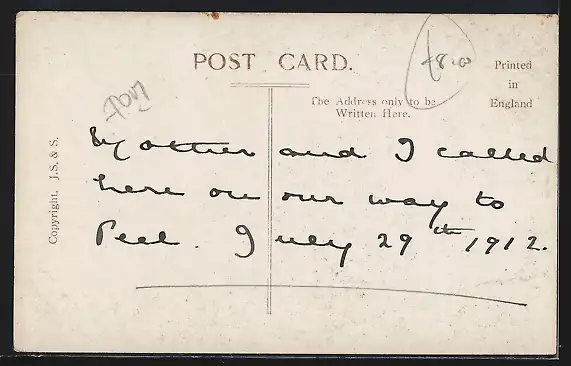 POST CARD.
£8.00
Printed
in
England
The Address only to be
Written Here.
Copyright. J.S. & S.
Mother and I called
here on our way to
Peel. July 29th 1912.